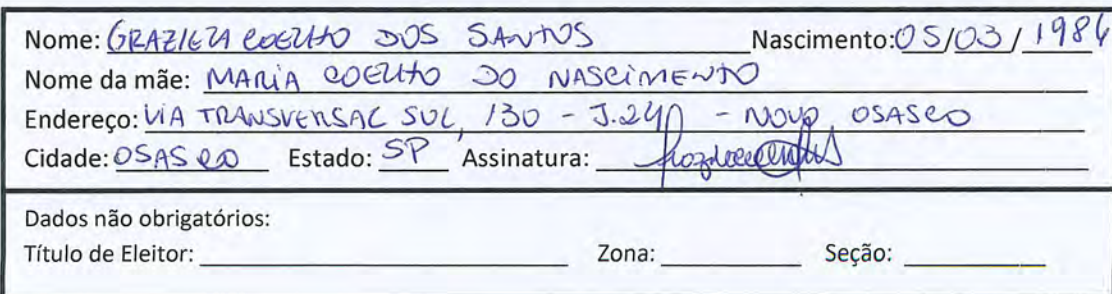 Nome: GRAZIELA COELHO DOS SANTOS Nascimento: 05/03/1986
Nome da mãe: MARIA COELHO DO NASCIMENTO
Endereço: VIA TRANSVERSAL SUL, 130 - J.24 - NOVO OSASCO
Cidade: OSASCO Estado: SP Assinatura:
Dados não obrigatórios:
Título de Eleitor: Zona: Seção: